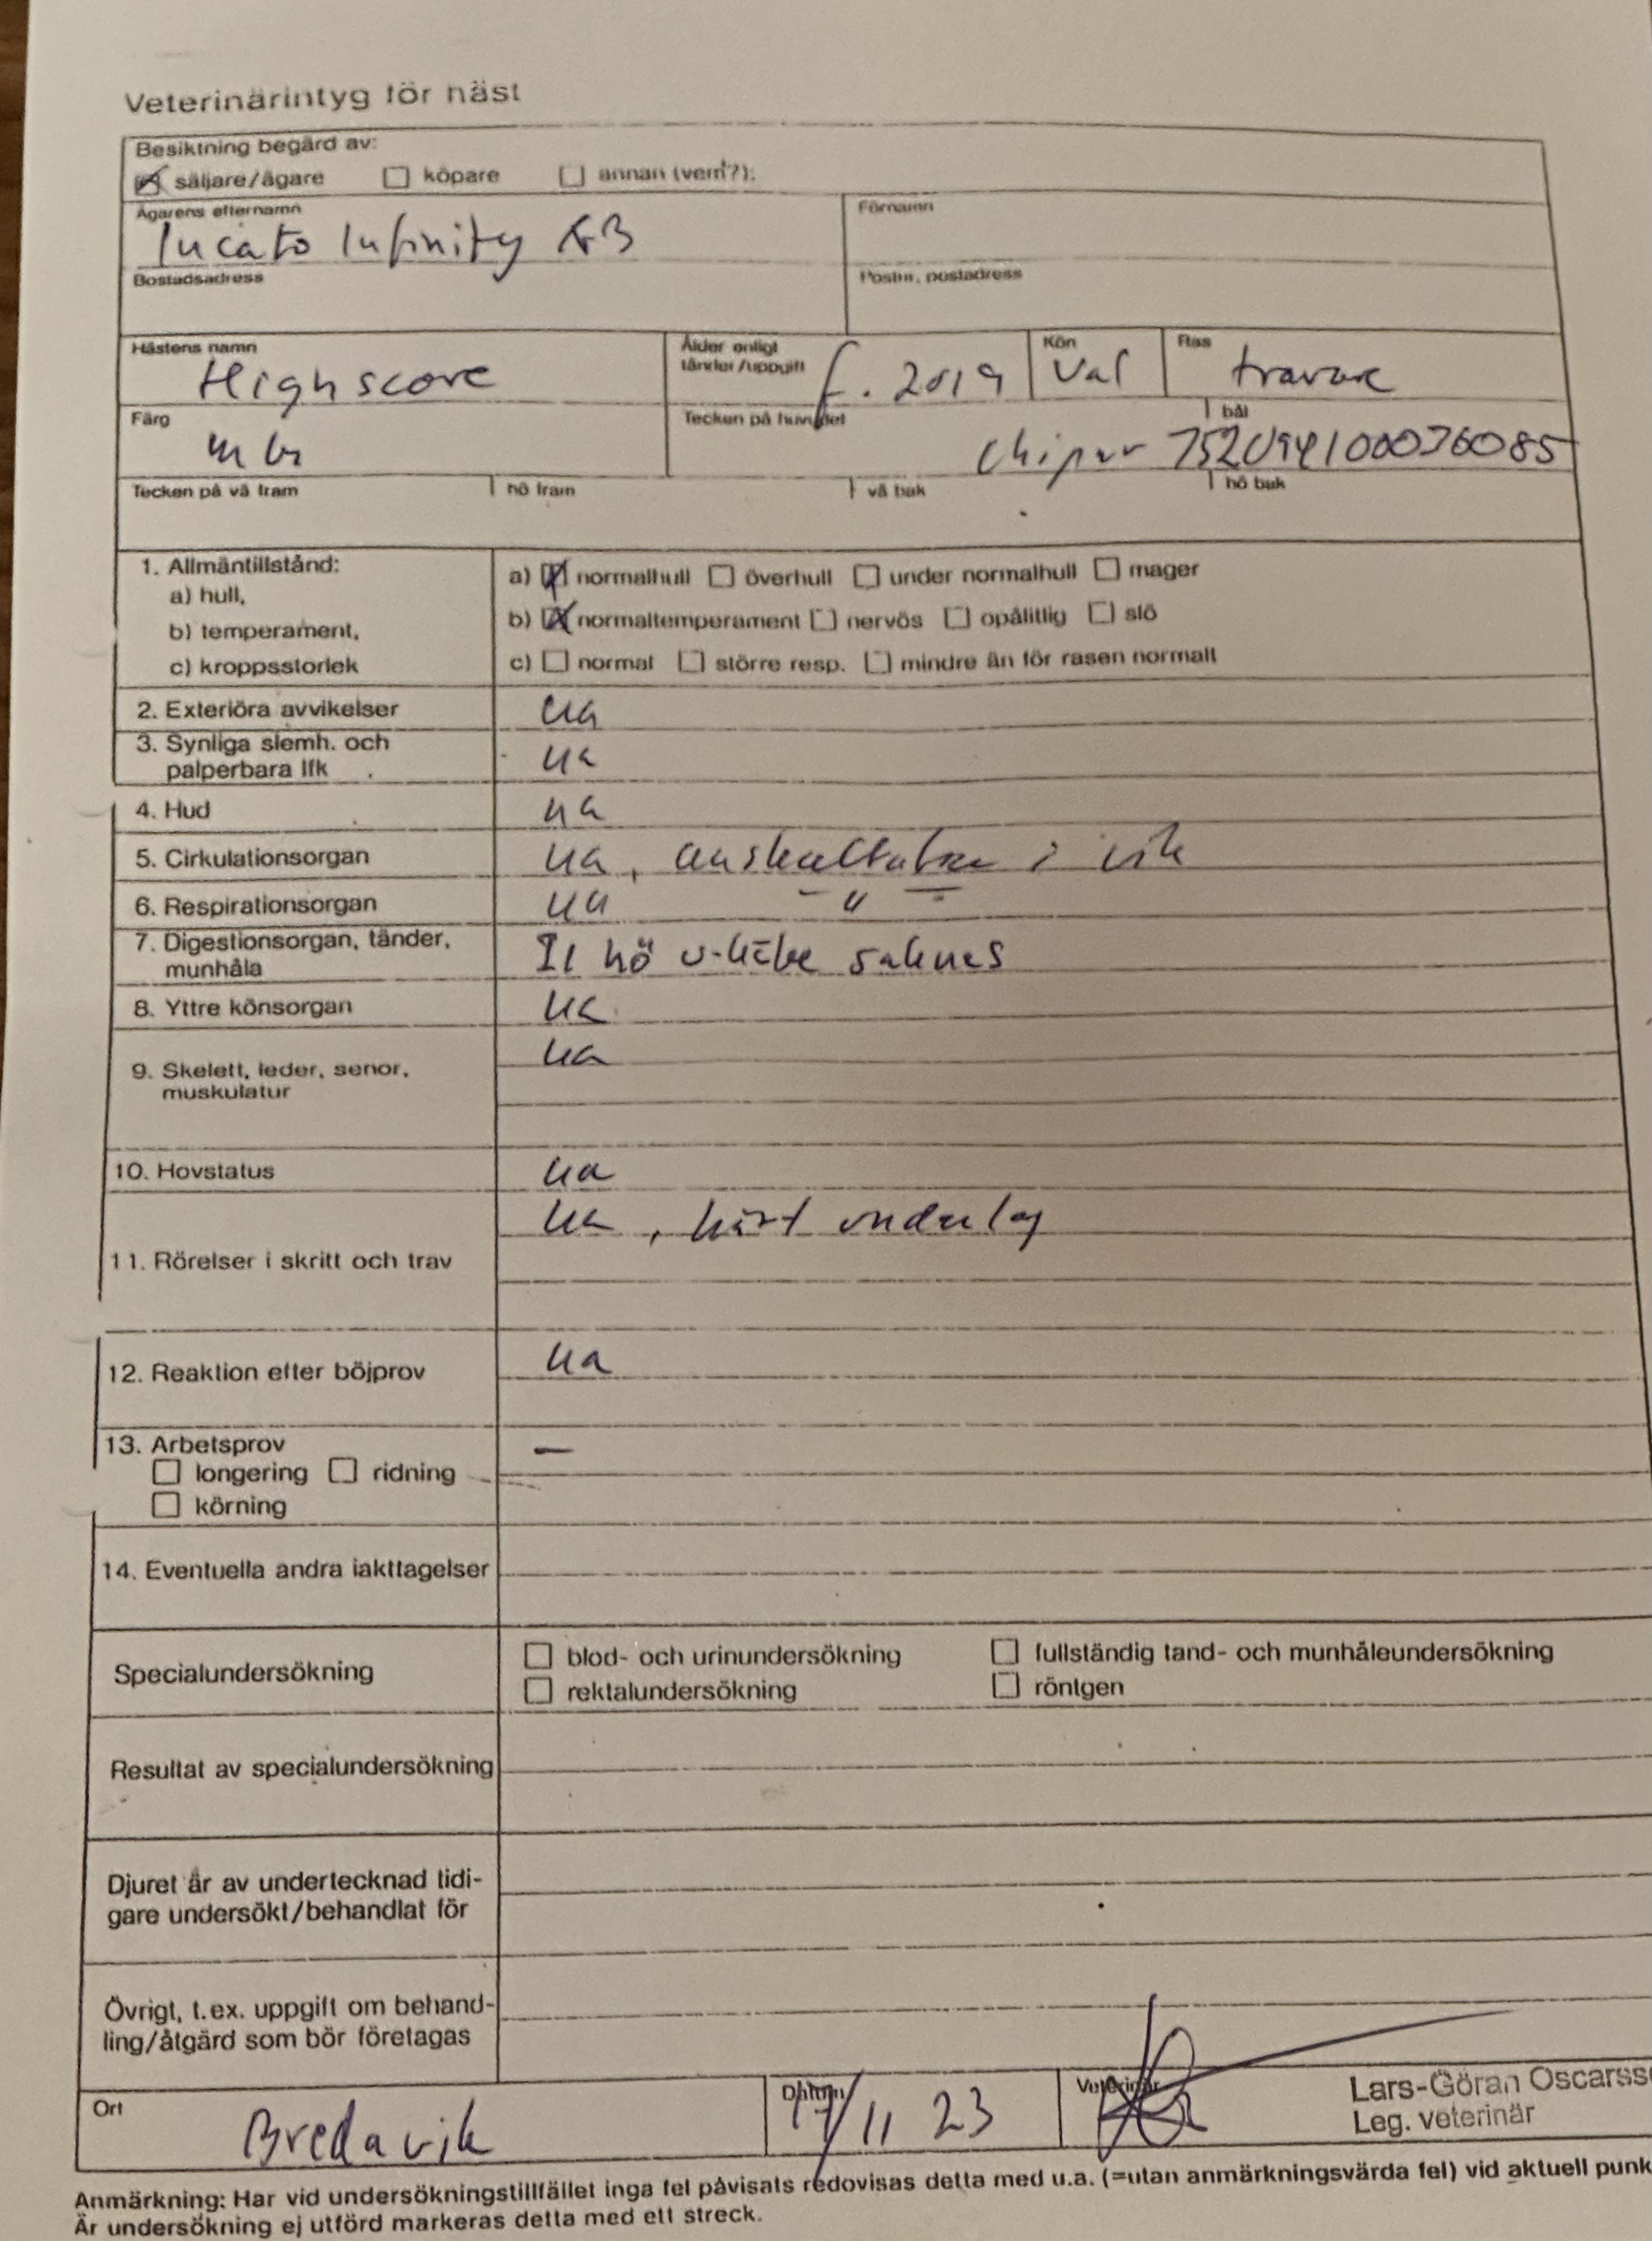 Veterinärintyg för häst
Besiktning begärd av:
säljare/ägare köpare annan (vem?):
Ägarens efternamn Förnamn
Incato Infinity AB
Bostadsadress Postnr, postadress
Hästens namn Ålder enligt tänder/uppgift Kön Ras
Highscore f. 2019 Val travare
Färg Tecken på huvudet bål
m br Chipnr 752094100036085
Tecken på vä fram hö fram vä bak hö bak
1. Allmäntillstånd:
a) hull, a) normalhull överhull under normalhull mager
b) temperament, b) normaltemperament nervös opålitlig slö
c) kroppsstorlek c) normal större resp. mindre än för rasen normalt
2. Exteriöra avvikelser ua
3. Synliga slemh. och
palperbara lfk ua
4. Hud ua
5. Cirkulationsorgan ua, auskultation i vila
6. Respirationsorgan ua – " –
7. Digestionsorgan, tänder,
munhåla I1 hö u-käke saknas
8. Yttre könsorgan ua
9. Skelett, leder, senor, ua
muskulatur
10. Hovstatus ua
ua, hårt underlag
11. Rörelser i skritt och trav
12. Reaktion efter böjprov ua
13. Arbetsprov –
longering ridning
körning
14. Eventuella andra iakttagelser
Specialundersökning blod- och urinundersökning fullständig tand- och munhåleundersökning
rektalundersökning röntgen
Resultat av specialundersökning
Djuret är av undertecknad tidi-
gare undersökt/behandlat för
Övrigt, t.ex. uppgift om behand-
ling/åtgärd som bör företagas
Ort Datum Veterinär Lars-Göran Oscarss
Bredavik 17/11 23 Leg. veterinär
Anmärkning: Har vid undersökningstillfället inga fel påvisats redovisas detta med u.a. (=utan anmärkningsvärda fel) vid aktuell punk
Är undersökning ej utförd markeras detta med ett streck.